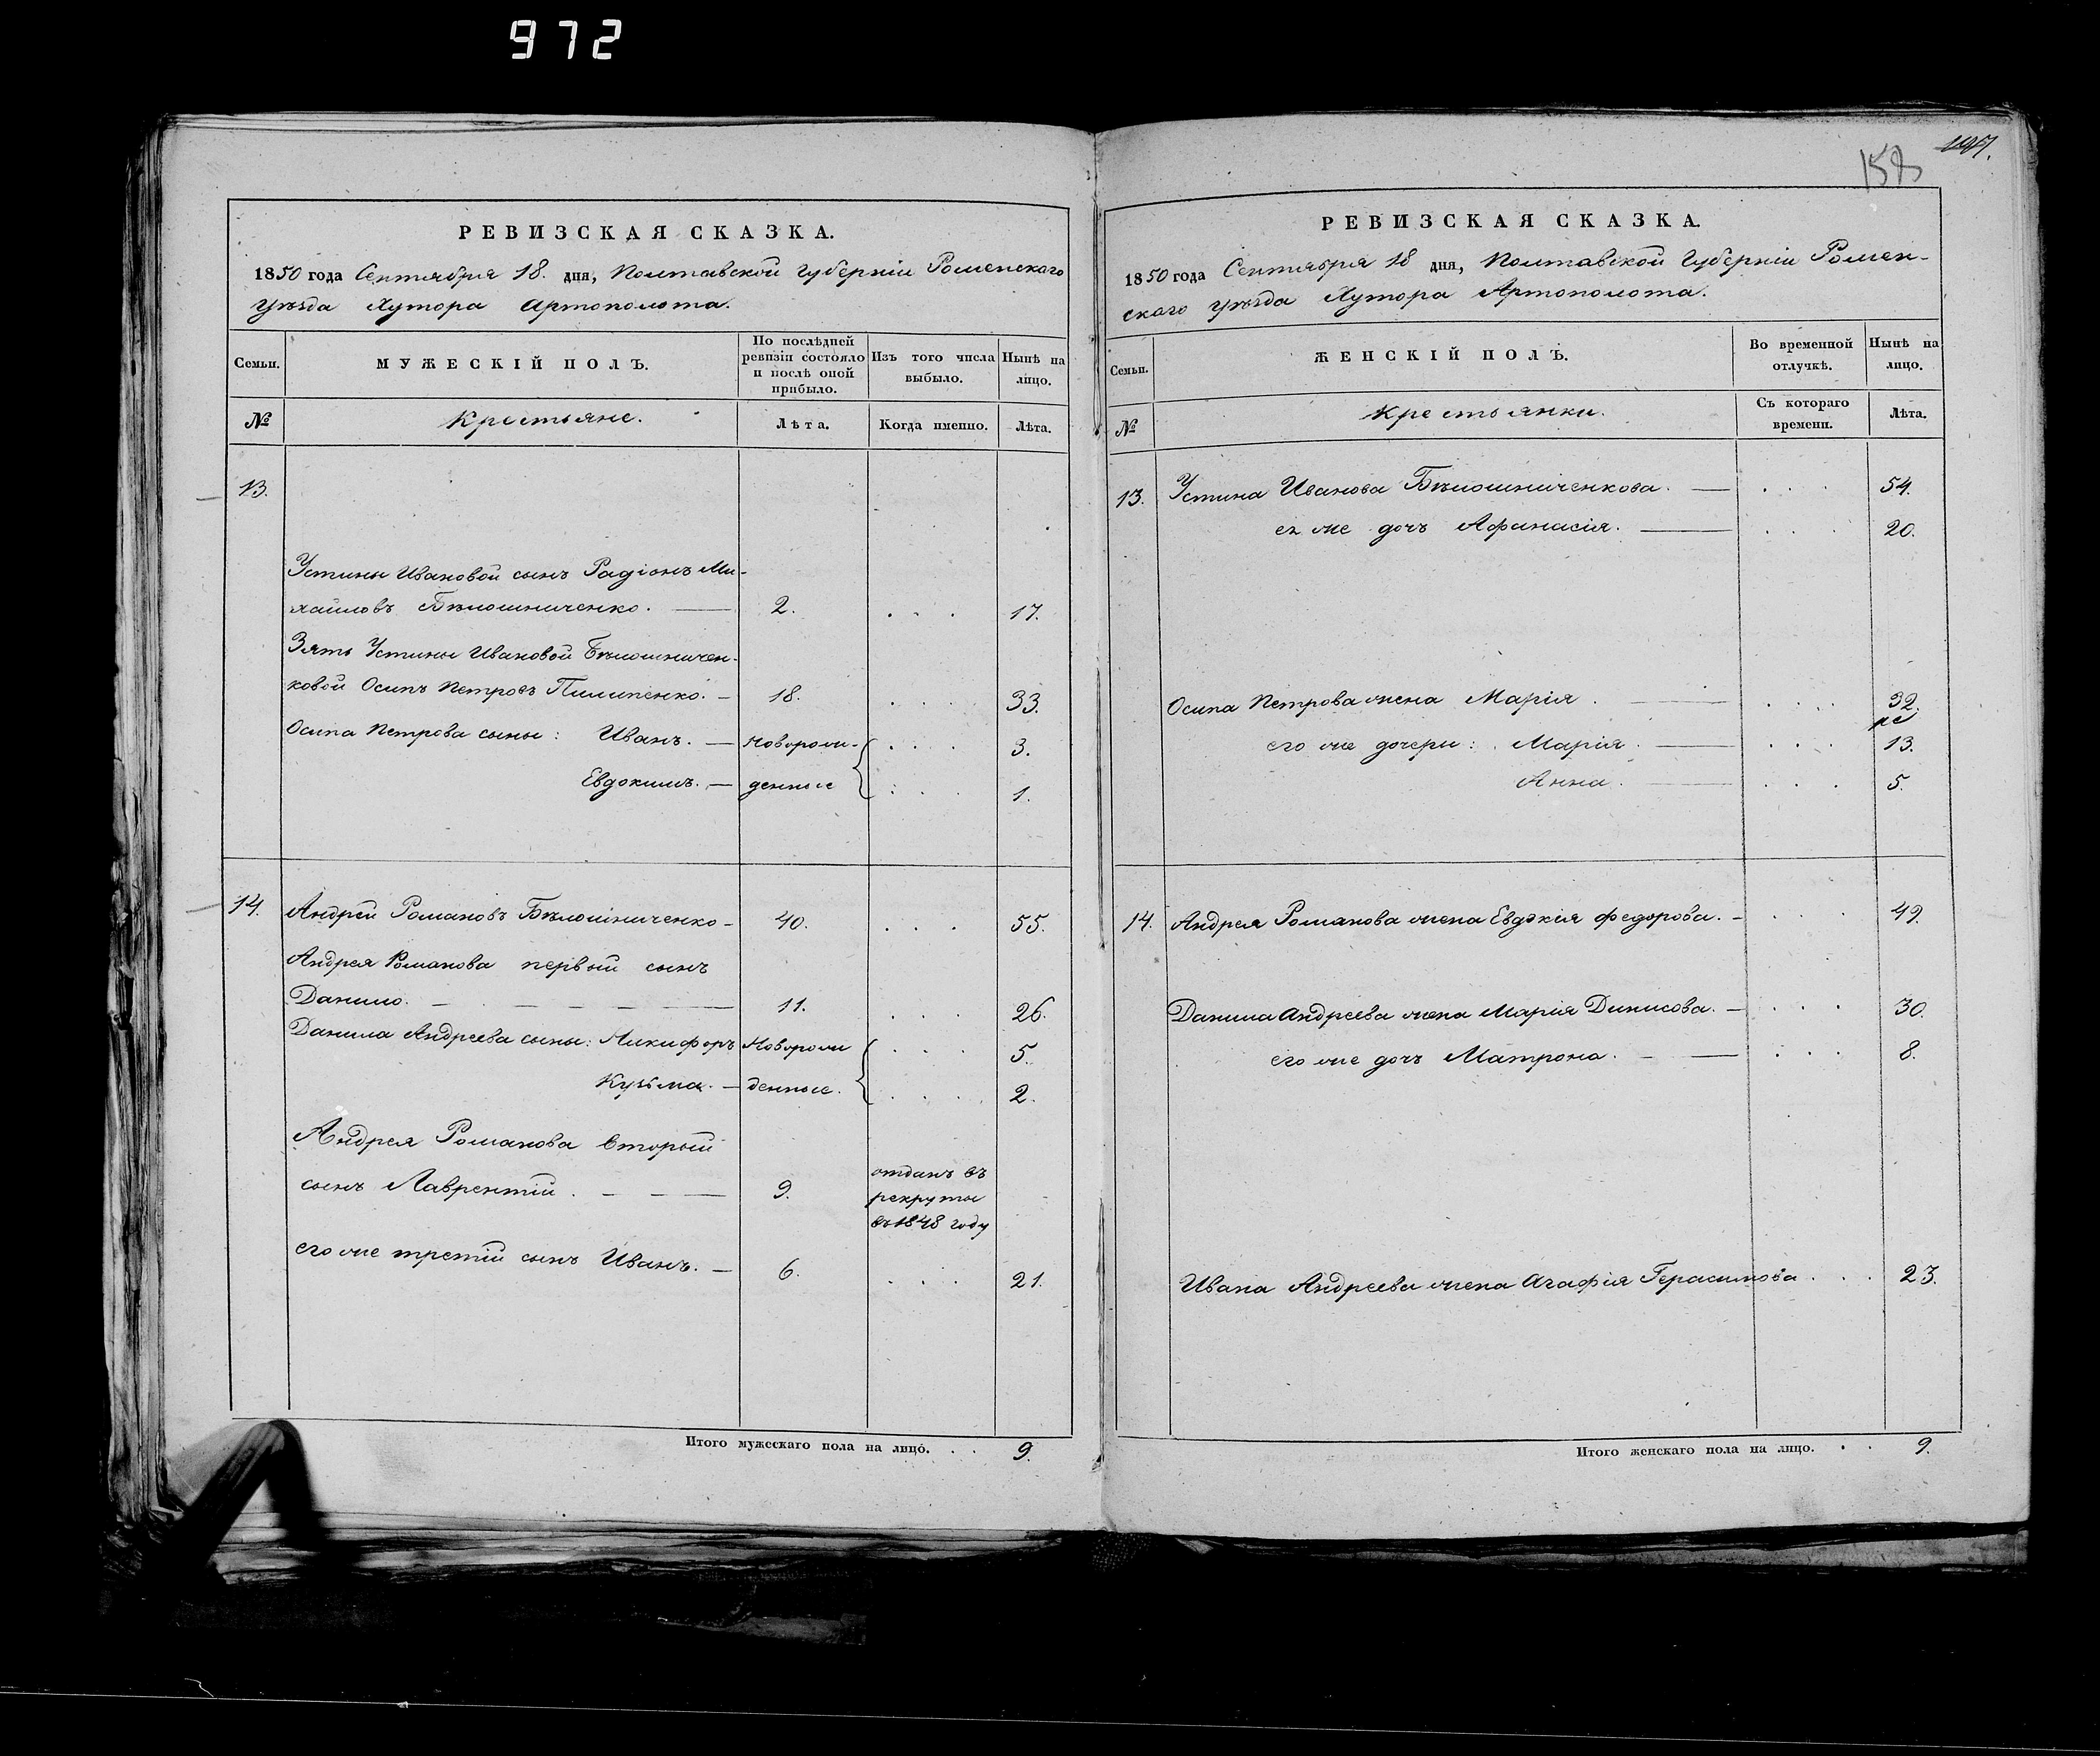 972
РЕВИЗСКАЯ СКАЗКА.
1850 года Сентября 18. дня, Полтавской Губерніи Роменского
Уѣзда Хутора Артополота.
Семьи.
МУЖЕСКІЙ ПОЛЪ.
По послѣдней ревизіи состояло и послѣ оной прибыло.
Изъ того числа выбыло.
Нынѣ на лицо.
№
Крестьяне.
Лѣта.
Когда именно.
Лѣта.
13.
Устины Ивановой сынъ Радіонъ Ми-
хайловъ Бѣлошниченко. — 2. . . . 17.
Зять Устины Ивановой Бѣлошничен-
ковой Осипъ Петровъ Пилипенко. — 18. . . . 33.
Осипа Петрова сыны: Иванъ. — Новорож- . . . 3.
Евдокимъ. — денные . . . 1.
14. Андрей Романовъ Бѣлошниченко — 40. . . . 55.
Андрея Романова первый сынъ
Данило. — 11. . . . 26.
Данила Андреева сыны: Никифоръ Новорож . . . 5.
Кузьма. — денные. . . . 2.
Андрея Романова вторый
сынъ Лаврентій. — 9. отданъ въ
рекруты
въ 1848 году
его же третій сынъ Иванъ. — 6. . . . 21.
Итого мужескаго пола на лицо. . . 9.
158
РЕВИЗСКАЯ СКАЗКА.
1850 года Сентября 18 дня, Полтавской Губерніи Ромен-
ского Уѣзда Хутора Артополота.
Семьи.
ЖЕНСКІЙ ПОЛЪ.
Во временной отлучкѣ.
Нынѣ на лицо.
№
Крестьянки.
Съ котораго времени.
Лѣта.
13. Устина Иванова Бѣлошниченкова. — . . . 54.
ея же дочь Афанасія. — . . . 20.
Осипа Петрова жена Марія. — . . . 32.
его же дочери: Марія. — . . . 13.
Анна. — . . . 5.
14. Андрея Романова жена Евдокія Федорова. — . . . 49.
Данила Андреева жена Марія Динисова. — . . . 30.
его же дочь Матрона. — . . . 8.
Ивана Андреева жена Агафія Герасимова . . . 23.
Итого женскаго пола на лицо. . . 9.